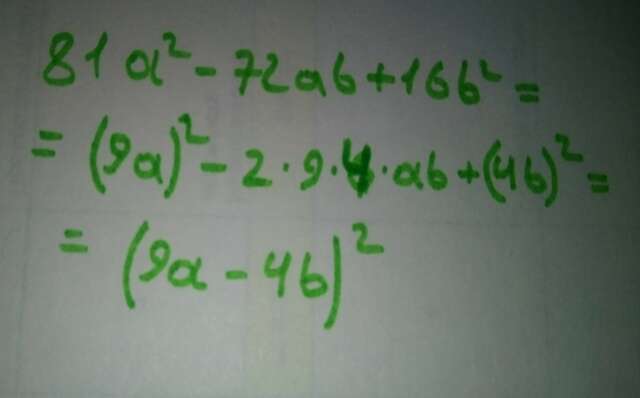 81a² - 72ab + 16b² =
= (9a)² - 2 · 9 · 4 · ab + (4b)² =
= (9a - 4b)²